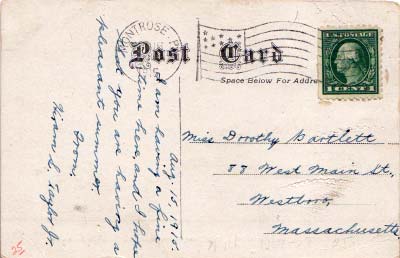 MONTROSE
Post Card
Space Below For Addre
U.S. POSTAGE
1 CENT 1
Aug. 15, 1915.
I am having a fine
time here, and I hope
that you are having a
pleasant summer.
From,
Hiram L. Taylor Jr.
Miss Dorothy Bartlett
88 West Main St.,
Westboro,
Massachusetts.
25